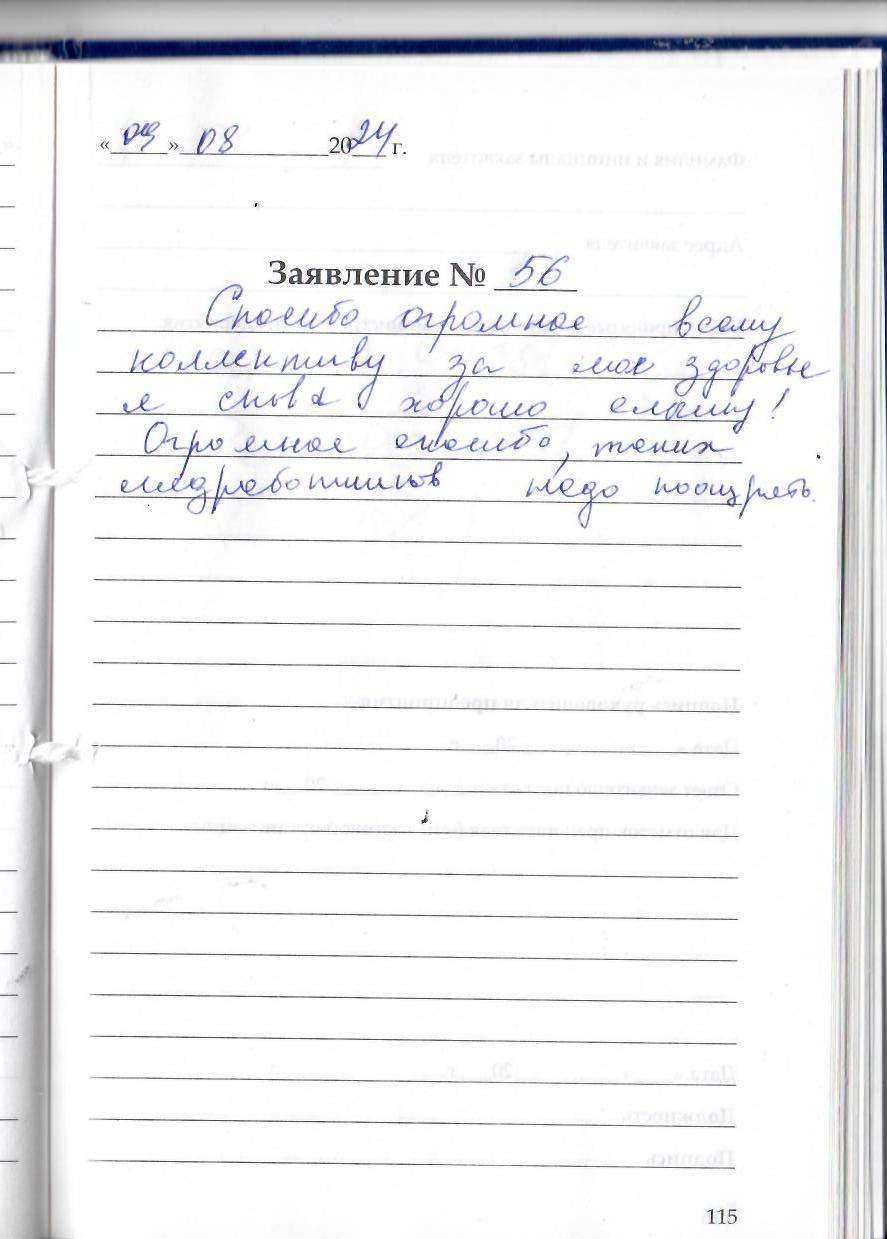 «09» 08 2024 г.
Заявление № 56
Спасибо огромное всему
коллективу за мое здоровье
я снова хорошо слышу!
Огромное спасибо, таких
медработников надо поощрять.
115